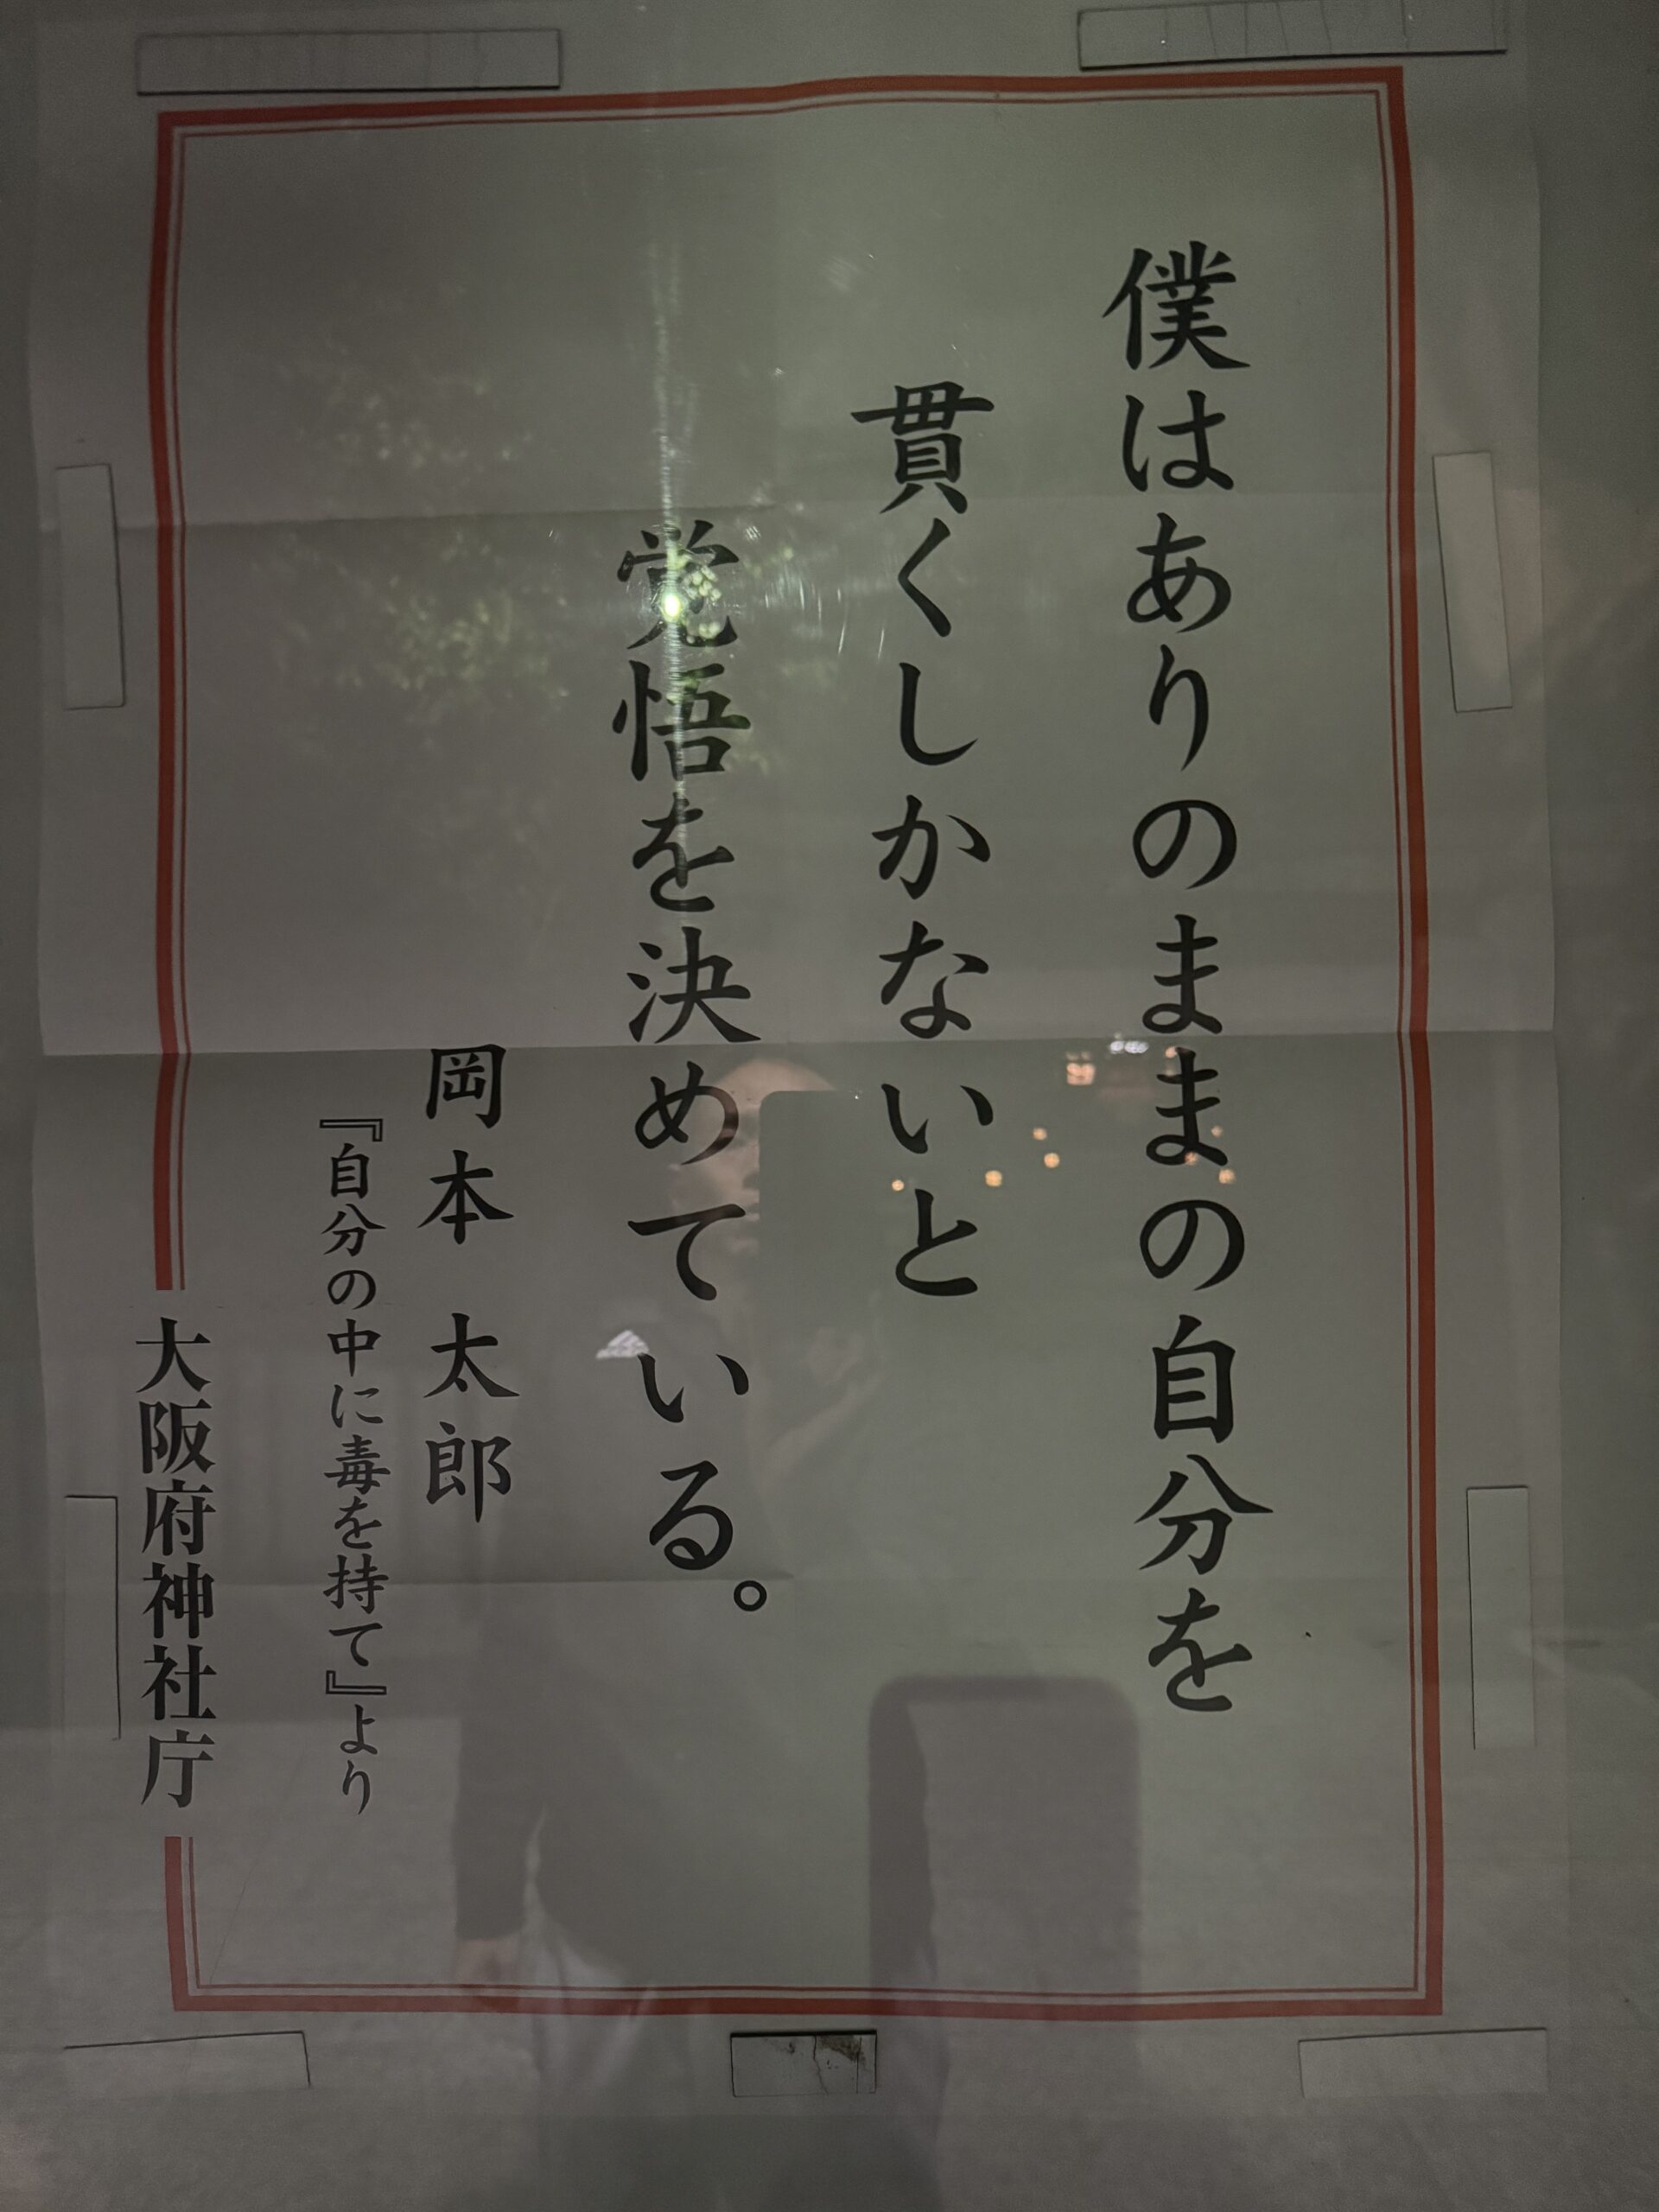 僕はありのままの自分を
貫くしかないと
覚悟を決めている。
岡本太郎
『自分の中に毒を持て』より
大阪府神社庁